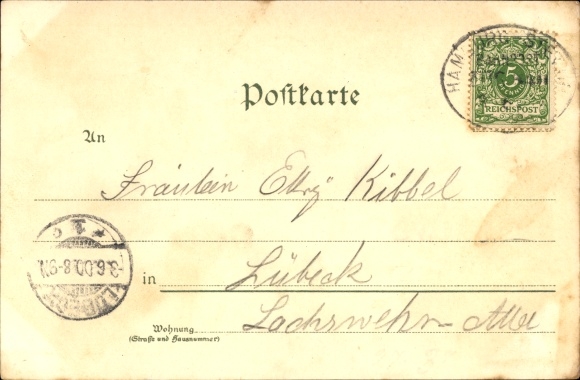 Postkarte
HAMBURG
5
PFENNIG
REICHSPOST
An
Fräulein Elly Kibbel
3.6.00.8-9N.
in Lübeck
Wohnung
(Straße und Hausnummer)
Lachswehr-Allee